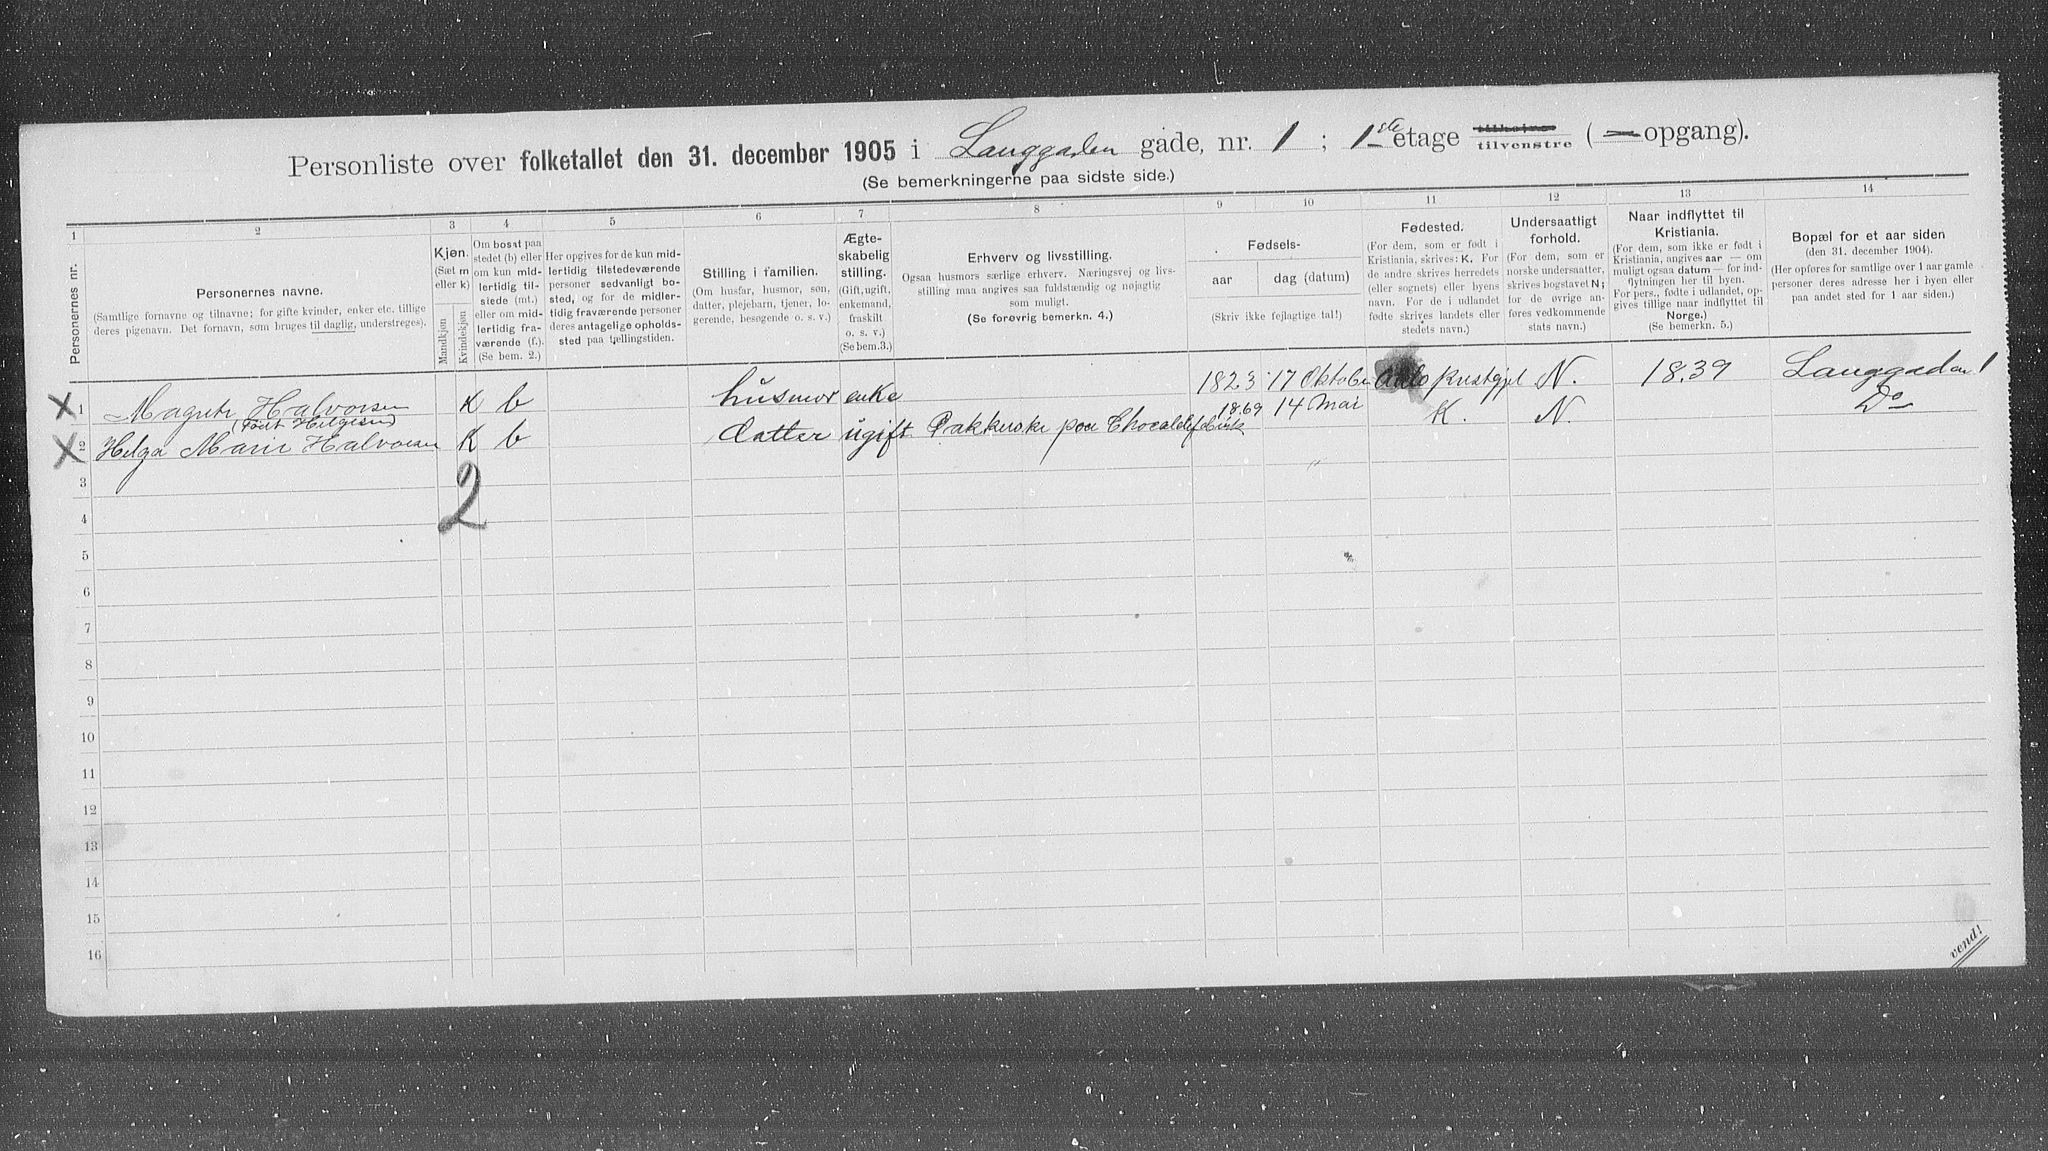 Personliste over folketallet den 31. december 1905 i Langgaden gade, nr. 1 ; 1ste etage tilhøire tilvenstre ( — opgang).
(Se bemerkningerne paa sidste side.)
1 2 3 4 5 6 7 8 9 10 11 12 13 14
Personernes nr.
Personernes navne.
(Samtlige fornavne og tilnavne; for gifte kvinder, enker etc. tillige
deres pigenavn. Det fornavn, som bruges til daglig, understreges).
Kjøn.
(Sæt m
eller k)
Mandkjøn
Kvindekjøn
Om bosat paa
stedet (b) eller
om kun mid-
lertidig til-
stede (mt.)
eller om mid-
lertidig fra-
værende (f.).
(Se bem. 2.)
Her opgives for de kun mid-
lertidig tilstedeværende
personer sedvanligt bo-
sted, og for de midler-
tidig fraværende personer
deres antagelige opholds-
sted paa tællingstiden.
Stilling i familien.
(Om husfar, husmor, søn,
datter, plejebarn, tjener, lo-
gerende, besøgende o. s. v.)
Ægte-
skabelig
stilling.
(Gift, ugift,
enkemand,
fraskilt
o. s. v.)
(Se bem. 3.)
Erhverv og livsstilling.
Ogsaa husmors særlige erhverv. Næringsvej og livs-
stilling maa angives saa fuldstændig og nøjagtig
som muligt.
(Se forøvrig bemerkn. 4.)
Fødsels-
aar dag (datum)
(Skriv ikke fejlagtige tal!)
Fødested.
(For dem, som er født i
Kristiania, skrives: K. For
de andre skrives herredets
(eller sognets) eller byens
navn. For de i udlandet
fødte skrives landets eller
stedets navn.)
Undersaatligt
forhold.
(For dem, som er
norske undersaatter,
skrives bogstavet N;
for de øvrige an-
føres vedkommende
stats navn.)
Naar indflyttet til
Kristiania.
(For dem, som ikke er født i
Kristiania, angives aar — om
muligt ogsaa datum — for ind-
flytningen her til byen.
For pers., fødte i udlandet, op-
gives tillige naar indflyttet til
Norge.)
(Se bemerkn. 5.)
Bopæl for et aar siden
(den 31. december 1904).
(Her opføres for samtlige over 1 aar gamle
personer deres adresse her i byen eller
paa andet sted for 1 aar siden.)
X 1 Magnte Halvorsen K b husmor enke 1823 17 Oktober N. 1839 Langgaden 1
(Født Helgesen)
X 2 Helga Marie Halvorsen K b datter ugift Pakkerske paa Chocoladefabrik 1869 14 Mai K. N. Do
2
3
4
5
6
7
8
9
10
11
12
13
14
15
16
vend!